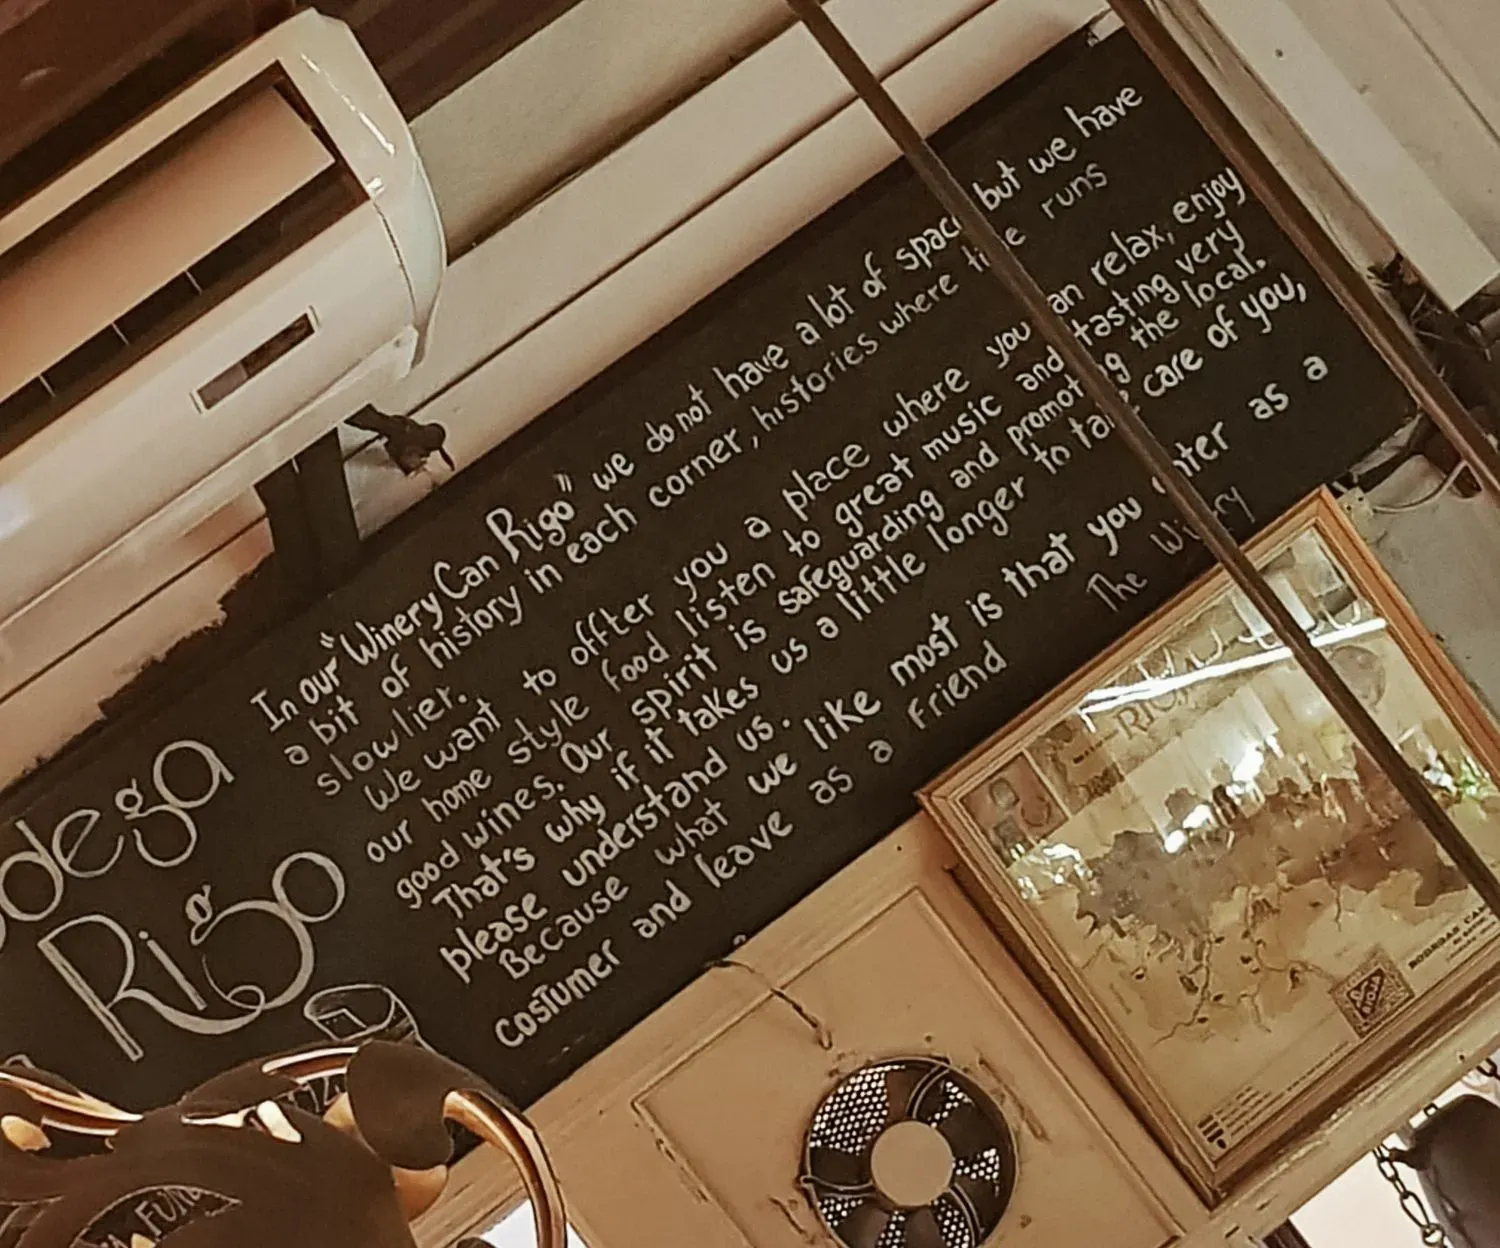 Rigo
In our "Winery Can Rigo" we do not have a lot of space but we have
a bit of history in each corner, histories where time runs
slowlier.
We want to offter you a place where you can relax, enjoy
our home style food listen to great music and tasting very
good wines. Our spirit is safeguarding and promoting the local.
That's why if it takes us a little longer to take care of you,
please understand us.
Because what we like most is that you enter as a
costumer and leave as a friend
The Winery